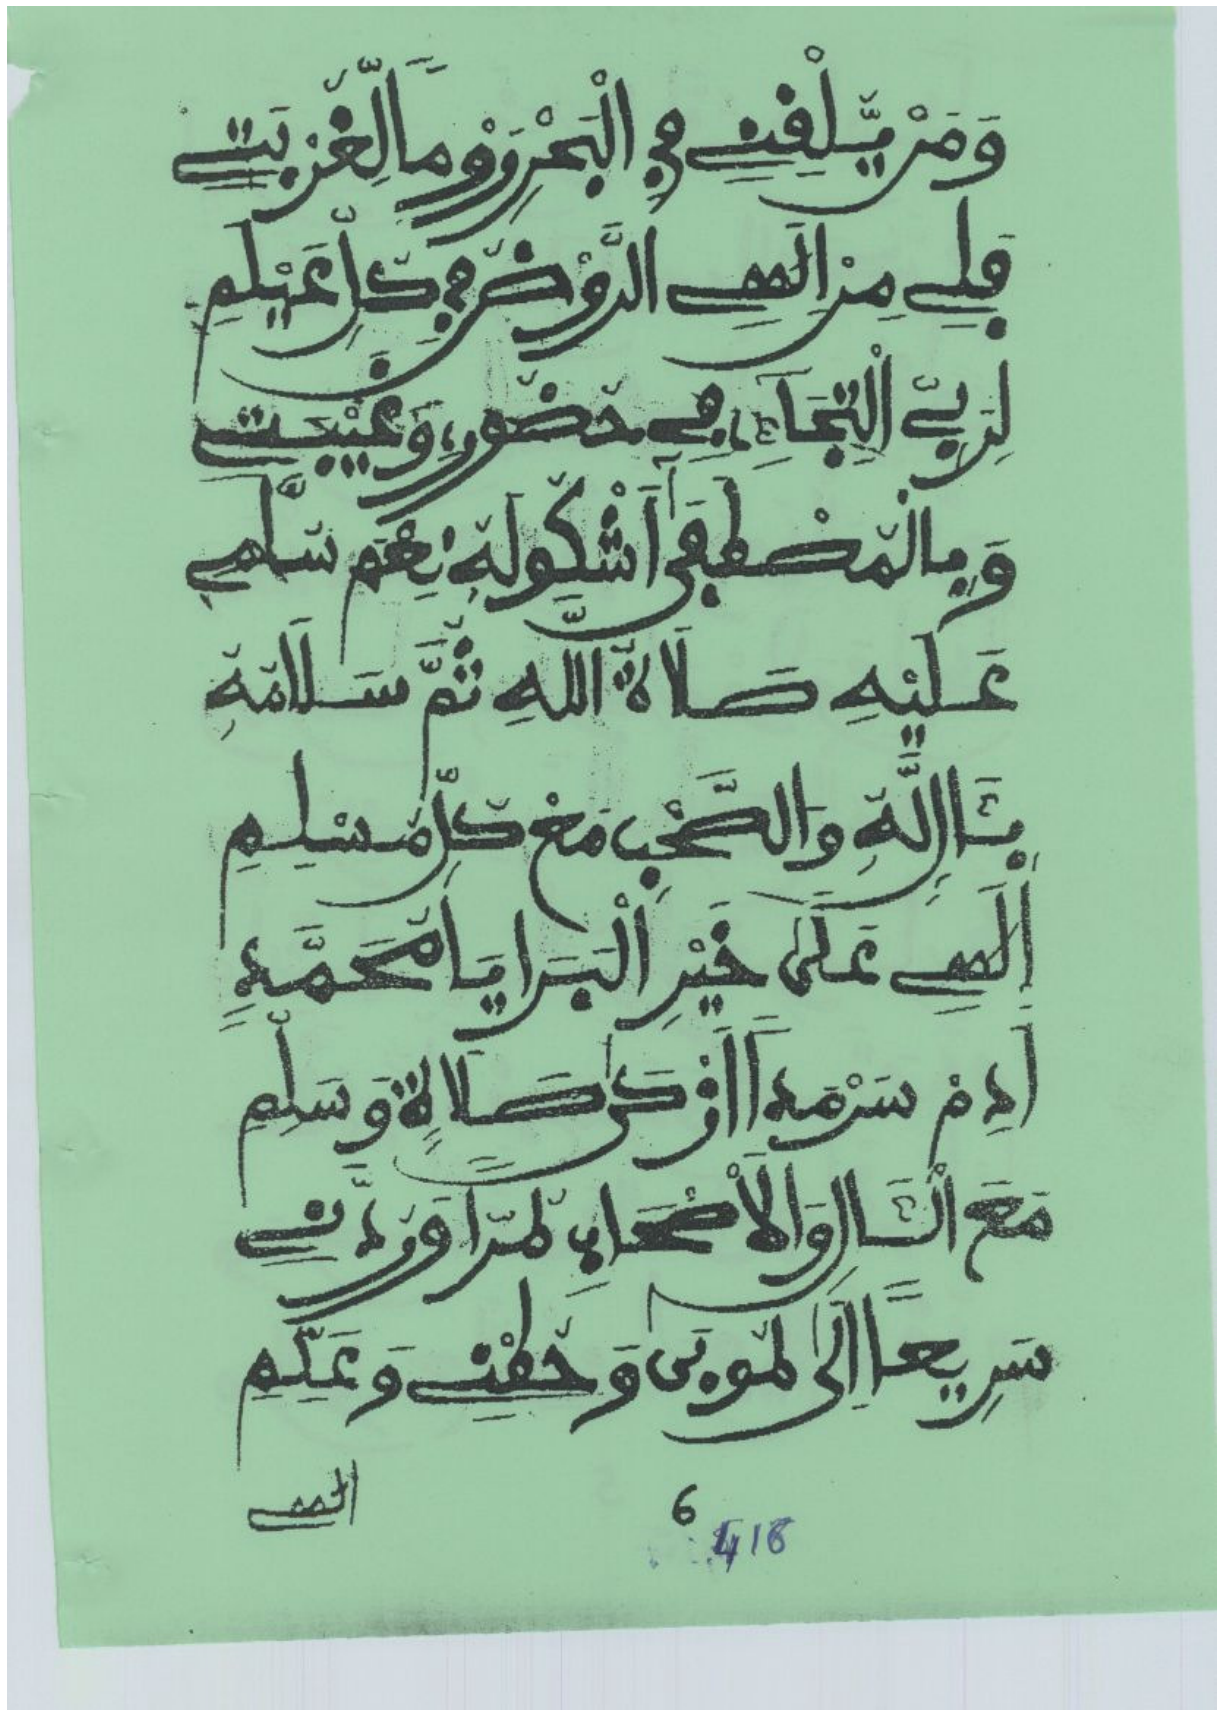 وَمَنْ يَّلْقَنِى فِى الْبَحْرِ يَوْمًا لِّغُرْبَتِى
فَلِى مِنْ إِلَهِى الرَّوْضُ فِى كُلِّ عَيْلَمِ
لِرَبِّى الْتِجَاءِى فِى حُضُورٍ وَغَيْبَتِى
وَبِالْمُصْطَفَى أَشْكُو لَهُ نِعْمَ سُلَّمِى
عَلَيْهِ صَلَاةُ اللَّهِ ثُمَّ سَلَامُهُ
بِآلٍ لَّهُ وَالصَّحْبِ مَعْ كُلِّ مُسْلِمِ
إِلَهِى عَلَى خَيْرِ الْبَرَايَا مُحَمَّدٍ
أَدِمْ سَرْمَدًا أَزْكَى صَلَاةٍ وَسَلِّمِ
مَعَ الْآلِ وَالْأَصْحَابِ طُرًّا وَرُدَّنِى
سَرِيعًا إِلَى طُوبَى وَحُطْنِى وَعَلِّمِ
إلهى
6
418